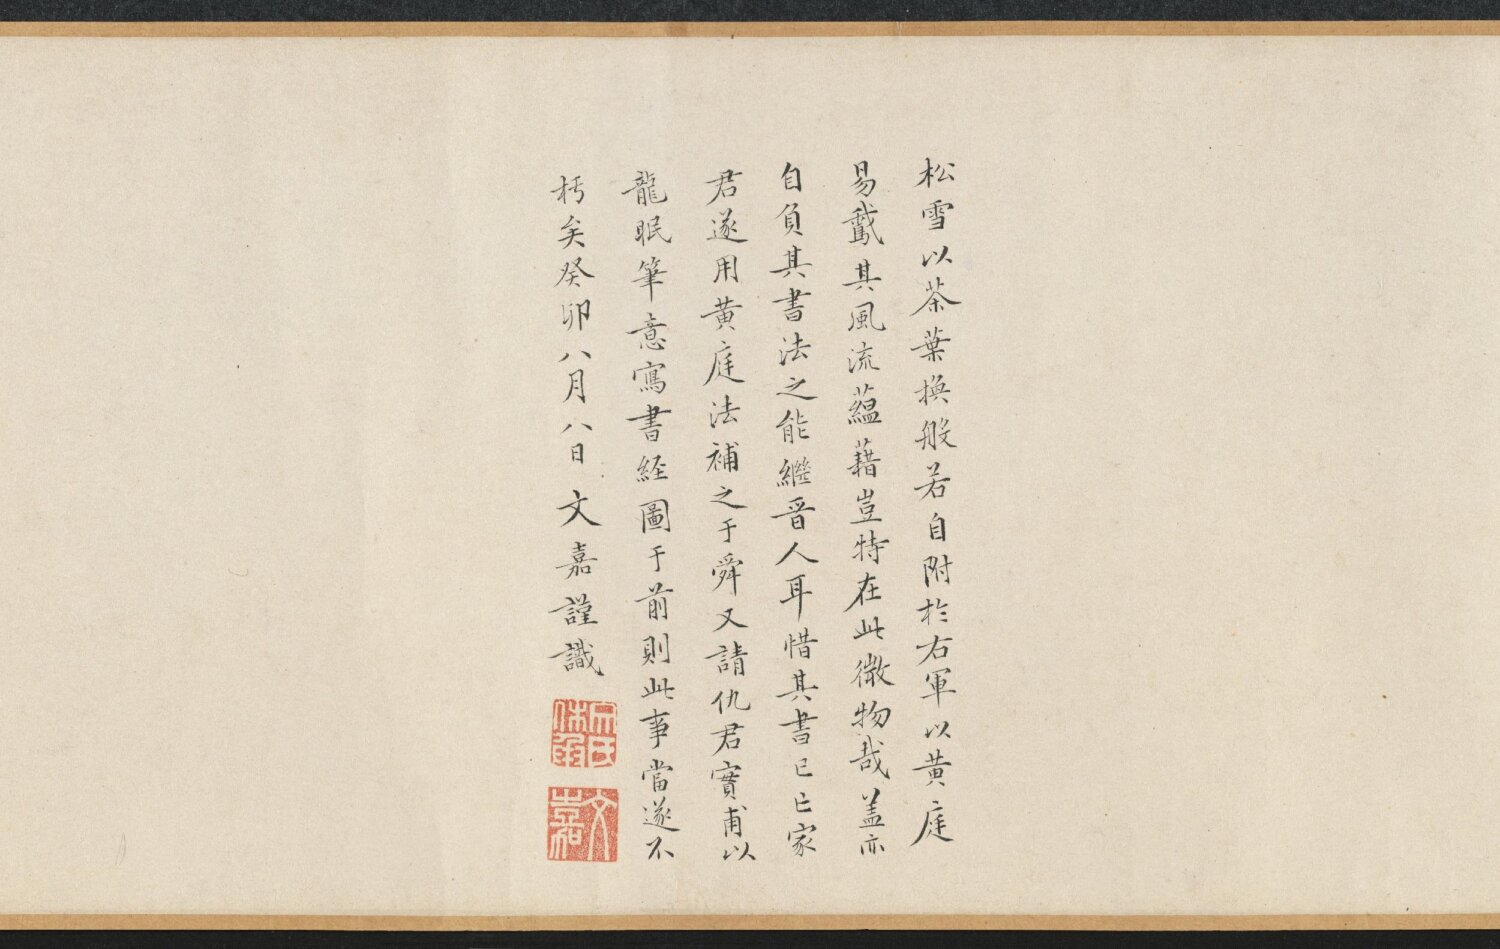 松雪以茶葉換般若自附於右軍以黃庭
易鵞其風流蘊藉豈特在此微物哉盖亦
自負其書法之能繼晉人耳惜其書已亡家
君遂用黃庭法補之于舜又請仇君實甫以
龍眠筆意寫書経圖于前則此事當遂不
朽矣癸卯八月八日文嘉謹識
文嘉